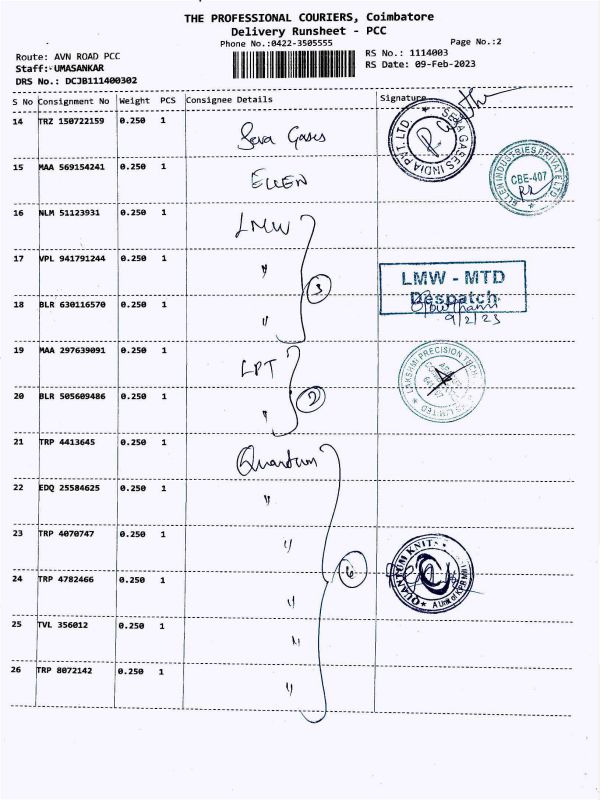 THE PROFESSIONAL COURIERS, Coimbatore
Delivery Runsheet - PCC
Phone No.:0422-3505555 Page No.:2
Route: AVN ROAD PCC RS No.: 1114003
Staff:-UMASANKAR RS Date: 09-Feb-2023
DRS No.: DCJB111400302
S No Consignment No Weight PCS Consignee Details Signature
14 TRZ 150722159 0.250 1 Seva Gases SEVA GASES INDIA PVT. LTD.
15 MAA 569154241 0.250 1 ELLEN ELLEN INDUSTRIES PRIVATE LTD CBE-407
16 NLM 51123931 0.250 1 LMW
17 VPL 941791244 0.250 1 〃 3 LMW - MTD
Despatch
18 BLR 630116570 0.250 1 〃 9/2/23
19 MAA 297639091 0.250 1 LPT LAKSHMI PRECISION
20 BLR 505609486 0.250 1 〃 2 LIMITED
21 TRP 4413645 0.250 1 Quantum
22 EDQ 25584625 0.250 1 〃
23 TRP 4070747 0.250 1 〃 QUANTUM KNITS
24 TRP 4782466 0.250 1 〃 6 A Unit of KPR Mill
25 TVL 356012 0.250 1 〃
26 TRP 8072142 0.250 1 〃